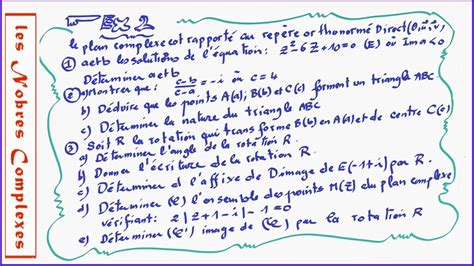 les Nobres Complexes
Ex 2
le plan complexe est rapporté au repère orthonormé Direct (o, u, v)
① a et b les solutions de l'équation: z² - 6z + 10 = 0 (E) où Im a < 0
Déterminer a et b
② a) Montrer que: c-b/c-a = -i où c = 4
b) Déduire que les points A(a); B(b) et C(c) forment un triangle ABC
c) Déterminer la nature du triangle ABC
③ Soit R la rotation qui transforme B(b) en A(a) et de centre C(c)
a) Déterminer l'angle de la rotation R.
b) Donner l'écriture de la rotation R
c) Déterminer d l'affixe de D image de E(-1+i) par R.
d) Déterminer (C) l'ensemble des points M(z) du plan complexe
vérifiant: 2|z+1-i| - 1 = 0
e) Déterminer (C') image de (C) par la rotation R